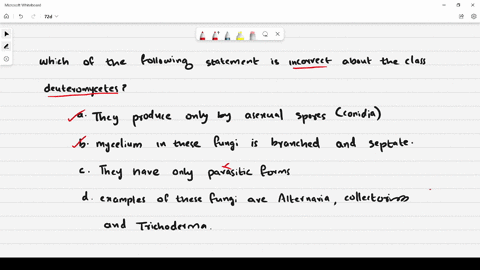 Microsoft Whiteboard
724
which of the following statement is incorrect about the class
deuteromycetes?
a. They produce only by asexual spores (conidia)
b. mycelium in these fungi is branched and septate.
c. They have only parasitic forms
d. examples of these fungi are Alternaria,
and Trichoderma.